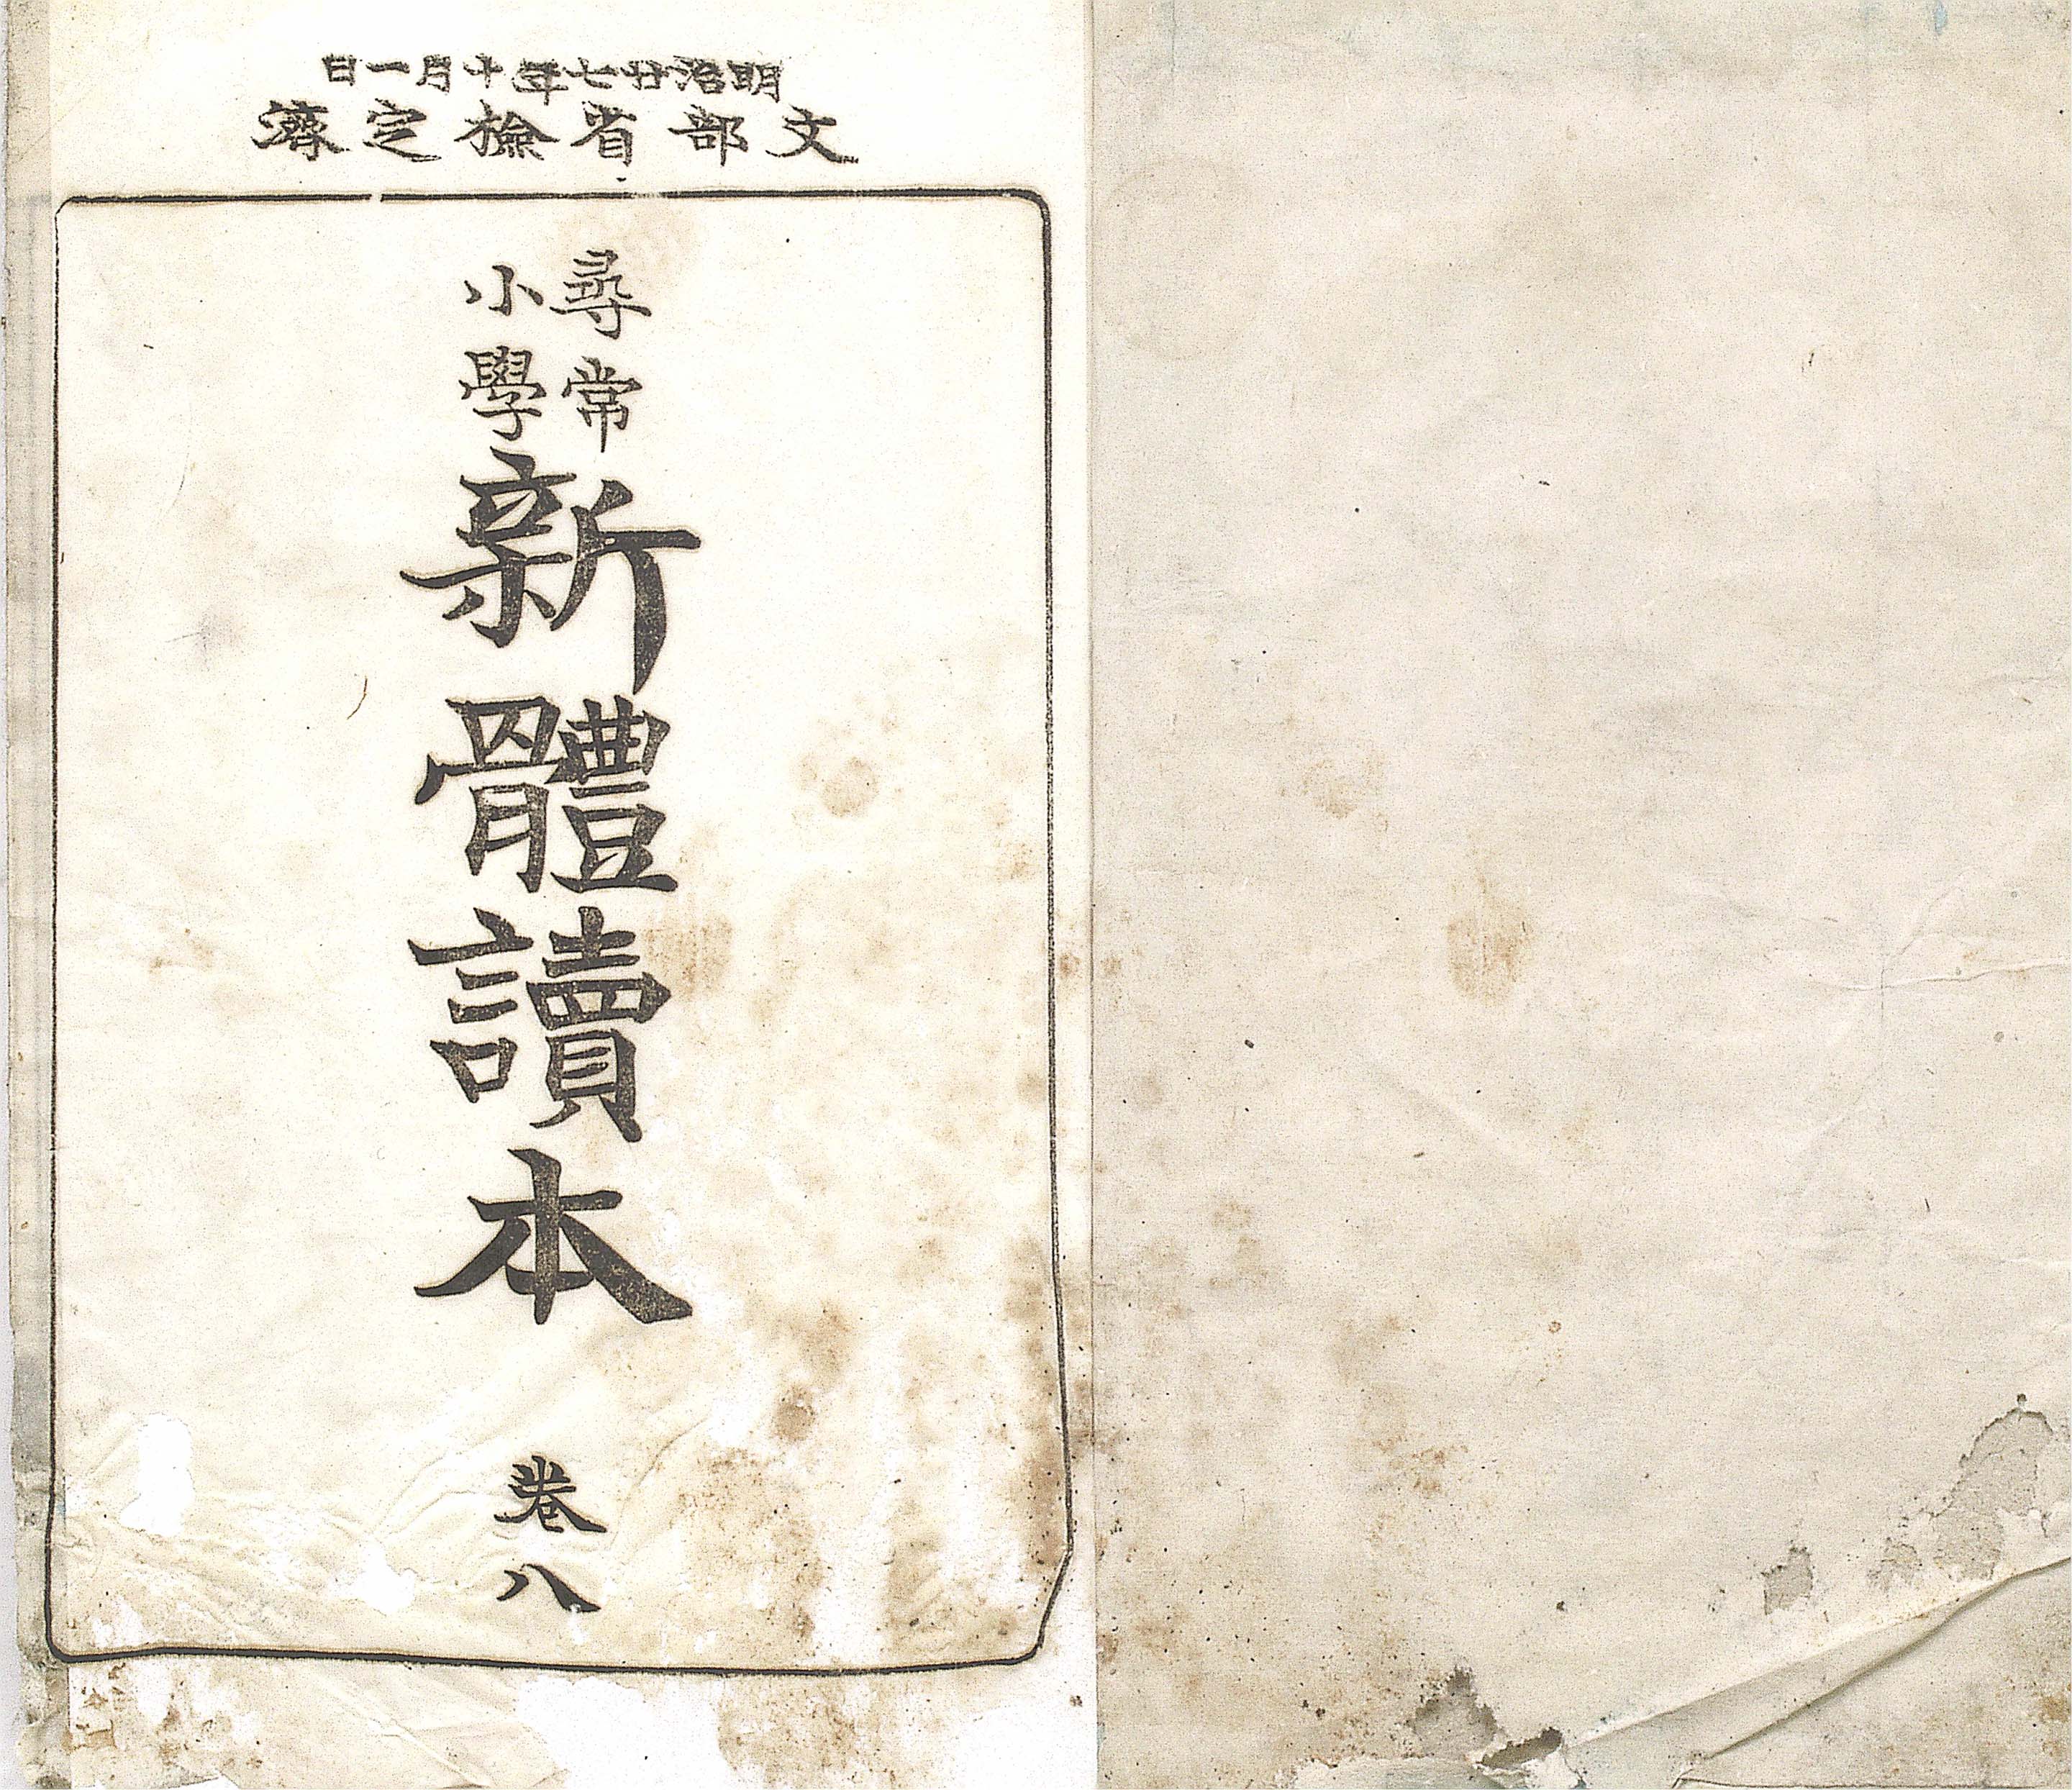 明治廿七年十月一日
文部省檢定濟
尋常
小學
新體讀本
卷八